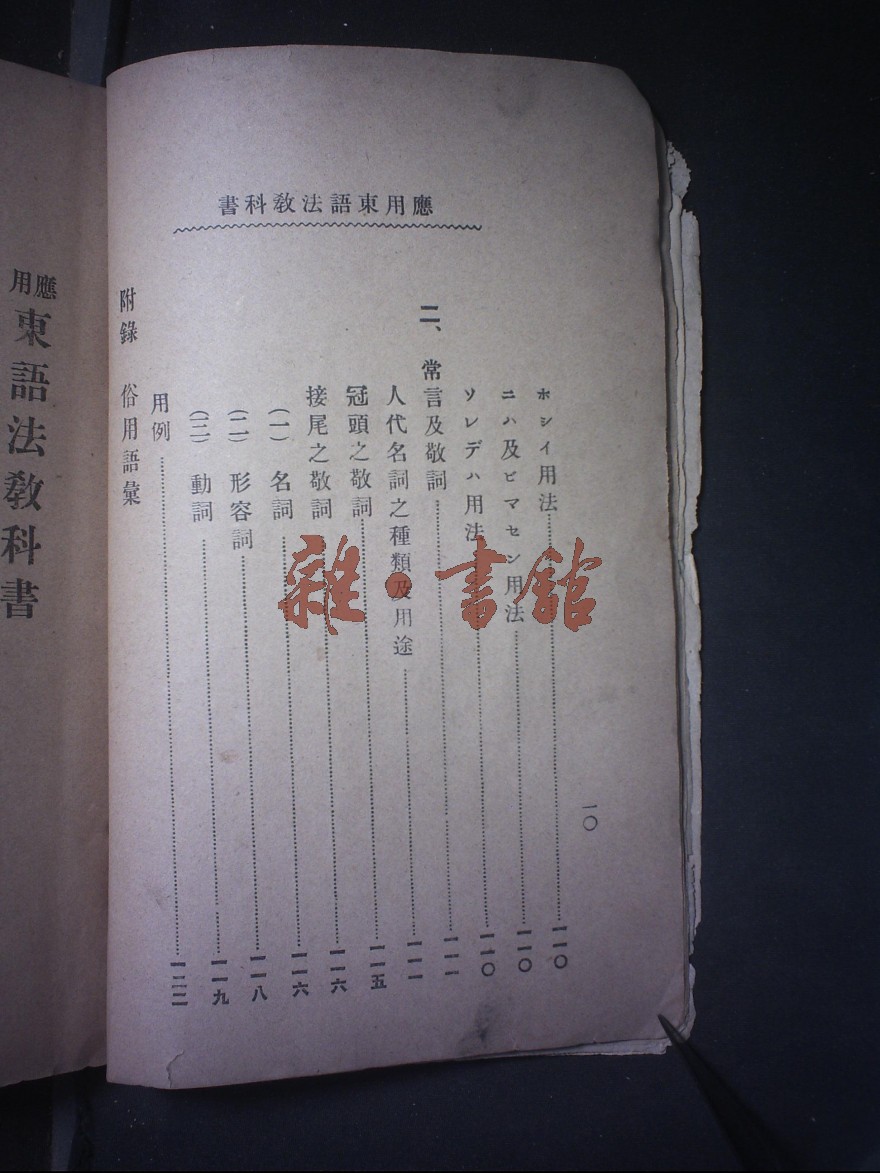 應用東語法教科書
一〇
ホシイ用法……一一〇
ニハ及ビマセン用法……一一〇
ソレデハ用法……一一〇
二、常言及敬詞……一一一
人代名詞之種類及用途……一一一
冠頭之敬詞……一一五
接尾之敬詞……一一六
(一) 名詞……一一六
(二) 形容詞……一一八
(三) 動詞……一一九
用例……一二二
附錄 俗用語彙
應用東語法教科書
雜·書館